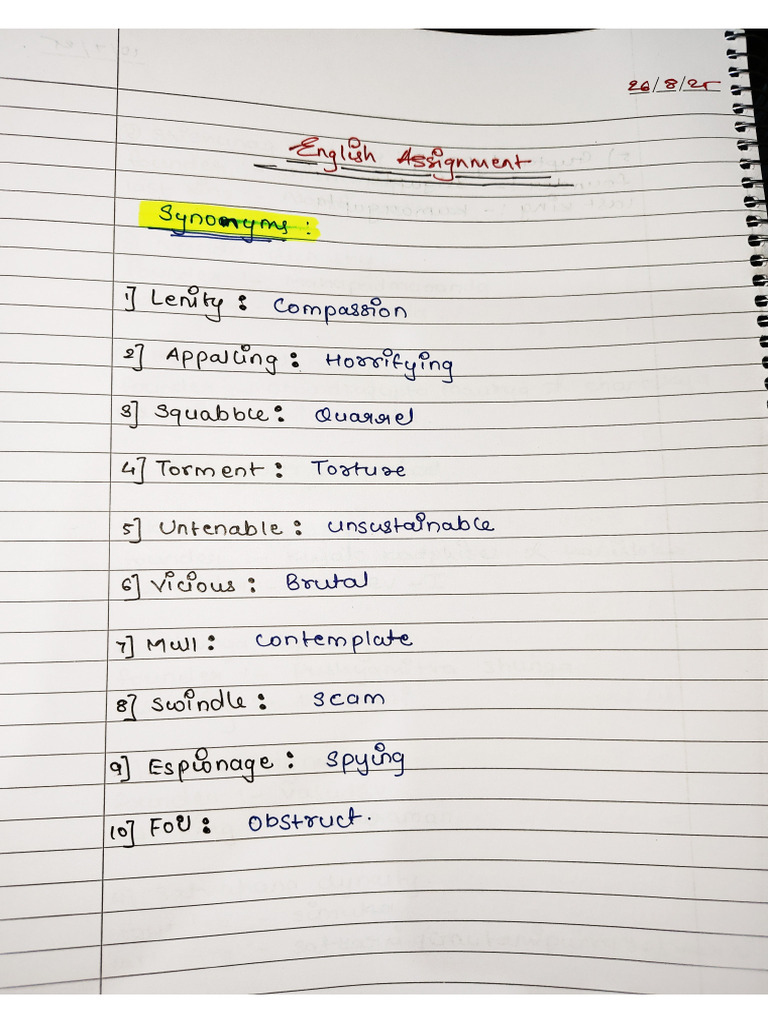 26/8/25
English Assignment
Synonyms:
1] Lenity: Compassion
2] Appalling: Horrifying
3] Squabble: Quarrel
4] Torment: Torture
5] Untenable: unsustainable
6] Vicious: Brutal
7] Mull: Contemplate
8] Swindle: Scam
9] Espionage: Spying
10] Foil: Obstruct.